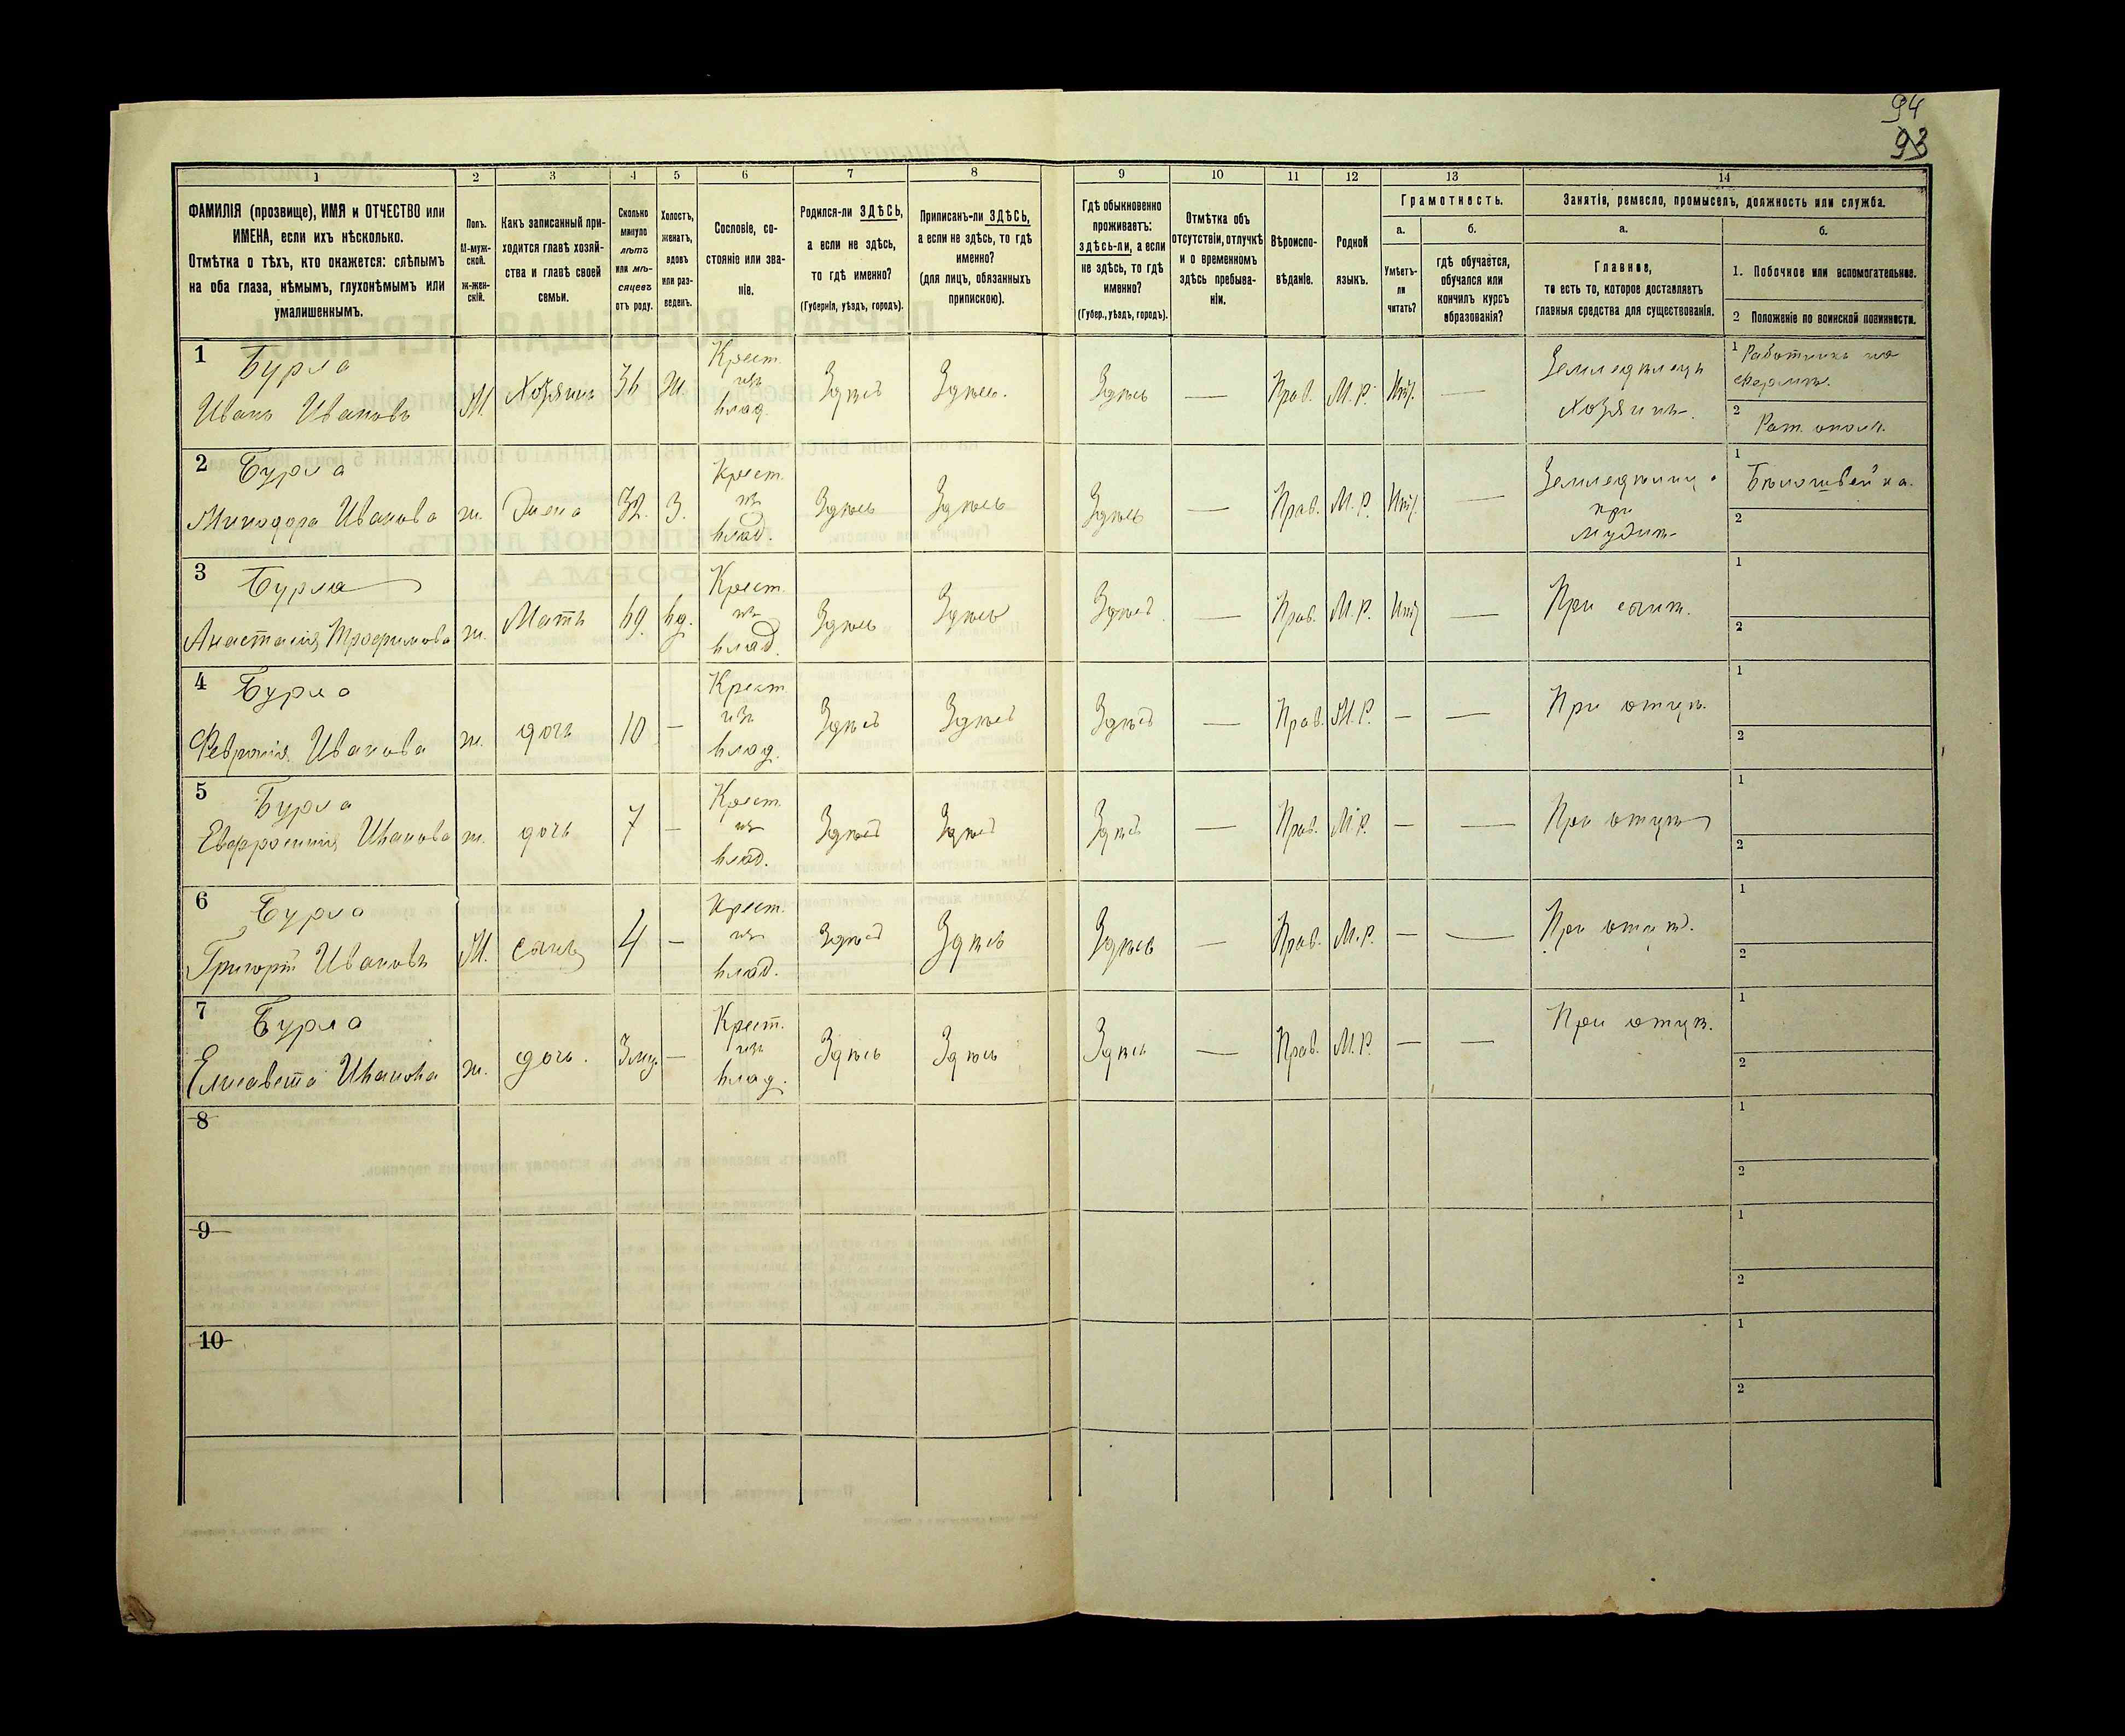 94
93
1
2
3
4
5
6
7
8
9
10
11
12
13
14
ФАМИЛІЯ (прозвище), ИМЯ и ОТЧЕСТВО или
ИМЕНА, если ихъ нѣсколько.
Отмѣтка о тѣхъ, кто окажется: слѣпымъ
на оба глаза, нѣмымъ, глухонѣмымъ или
умалишеннымъ.
Полъ.
М-муж-
ской.
ж-жен-
скій.
Какъ записанный при-
ходится главѣ хозяй-
ства и главѣ своей
семьи.
Сколько
минуло
лѣтъ
или мѣ-
сяцевъ
отъ роду.
Холостъ,
женатъ,
вдовъ
или раз-
веденъ.
Сословіе, со-
стояніе или зва-
ніе.
Родился-ли ЗДѢСЬ,
а если не здѣсь,
то гдѣ именно?
(Губернія, уѣздъ, городъ).
Приписанъ-ли ЗДѢСЬ,
а если не здѣсь, то гдѣ
именно?
(для лицъ, обязанныхъ
припискою).
Гдѣ обыкновенно
проживаетъ:
здѣсь-ли, а если
не здѣсь, то гдѣ
именно?
(Губер., уѣздъ, городъ).
Отмѣтка объ
отсутствіи, отлучкѣ
и о временномъ
здѣсь пребыва-
ніи.
Вѣроиспо-
вѣданіе.
Родной
языкъ.
Грамотность.
а.
Умѣетъ-
ли
читать?
б.
гдѣ обучается,
обучался или
кончилъ курсъ
образованія?
Занятія, ремесло, промыселъ, должность или служба.
а.
Главное,
то есть то, которое доставляетъ
главныя средства для существованія.
б.
1. Побочное или вспомогательное.
2 Положеніе по воинской повинности.
1 Бурла
Иванъ Ивановъ
М.
Хозяинъ
36
Ж.
Крест.
изъ
влад.
Здѣсь
Здѣсь.
Здѣсь
—
Прав.
М. Р.
Нѣт.
—
Земледѣлецъ
Хозяинъ.
1 Работникъ на
2 Рат. ополч.
2 Бурла
Минодора Иванова
ж.
Жена
32.
З.
Крест.
изъ
влад.
Здѣсь
Здѣсь
Здѣсь
—
Прав.
М. Р.
Нѣт.
—
при
мужѣ
1 Бѣлошвейка.
2
3 Бурла
Анастасія Трофимова
ж.
Мать
69.
вд.
Крест.
изъ
влад.
Здѣсь
Здѣсь
Здѣсь.
—
Прав.
М. Р.
Нѣт
—
При сынѣ.
1
2
4 Бурла
Февронія Иванова
ж.
дочь
10
—
Крест.
изъ
влад.
Здѣсь
Здѣсь
Здѣсь
—
Прав.
М. Р.
—
—
При отцѣ.
1
2
5 Бурла
Евфросинія Иванова
ж.
дочь
7
—
Крест.
изъ
влад.
Здѣсь
Здѣсь
Здѣсь
—
Прав.
М. Р.
—
—
При отцѣ
1
2
6 Бурла
Григорій Ивановъ
М.
сынъ
4
—
Крест.
изъ
влад.
Здѣсь
Здѣсь
Здѣсь
—
Прав.
М. Р.
—
—
При отцѣ.
1
2
7 Бурла
Елисавета Иванова
ж.
дочь.
—
Крест.
изъ
влад.
Здѣсь
Здѣсь
Здѣсь
—
Прав.
М. Р.
—
—
При отцѣ.
1
2
8
1
2
9
1
2
10
1
2